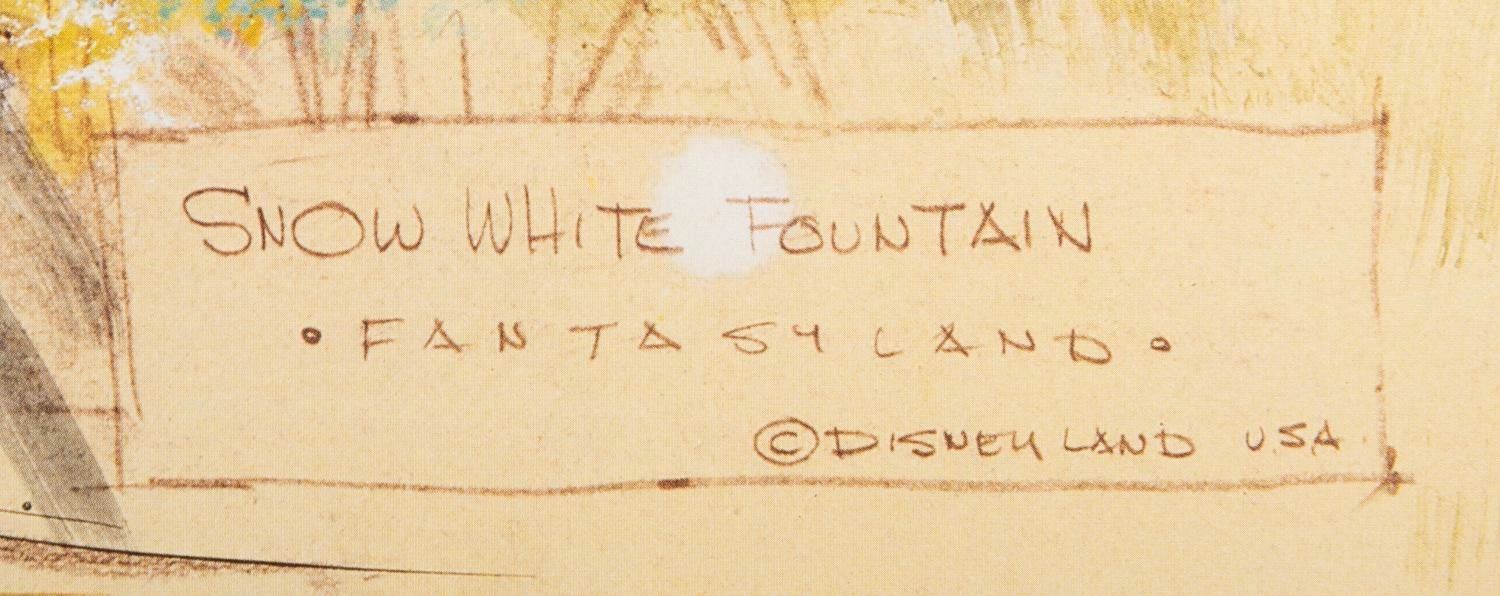 SNOW WHITE FOUNTAIN
• FANTASYLAND •
© DISNEYLAND USA